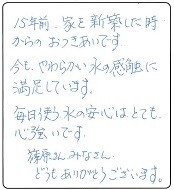 15年前、家を新築した時
からのおつきあいです
今も、やわらかい水の感触に
満足しています。
毎日使う水の安心はとても
心強いです。
篠原さん、みなさん
どうもありがとうございます。